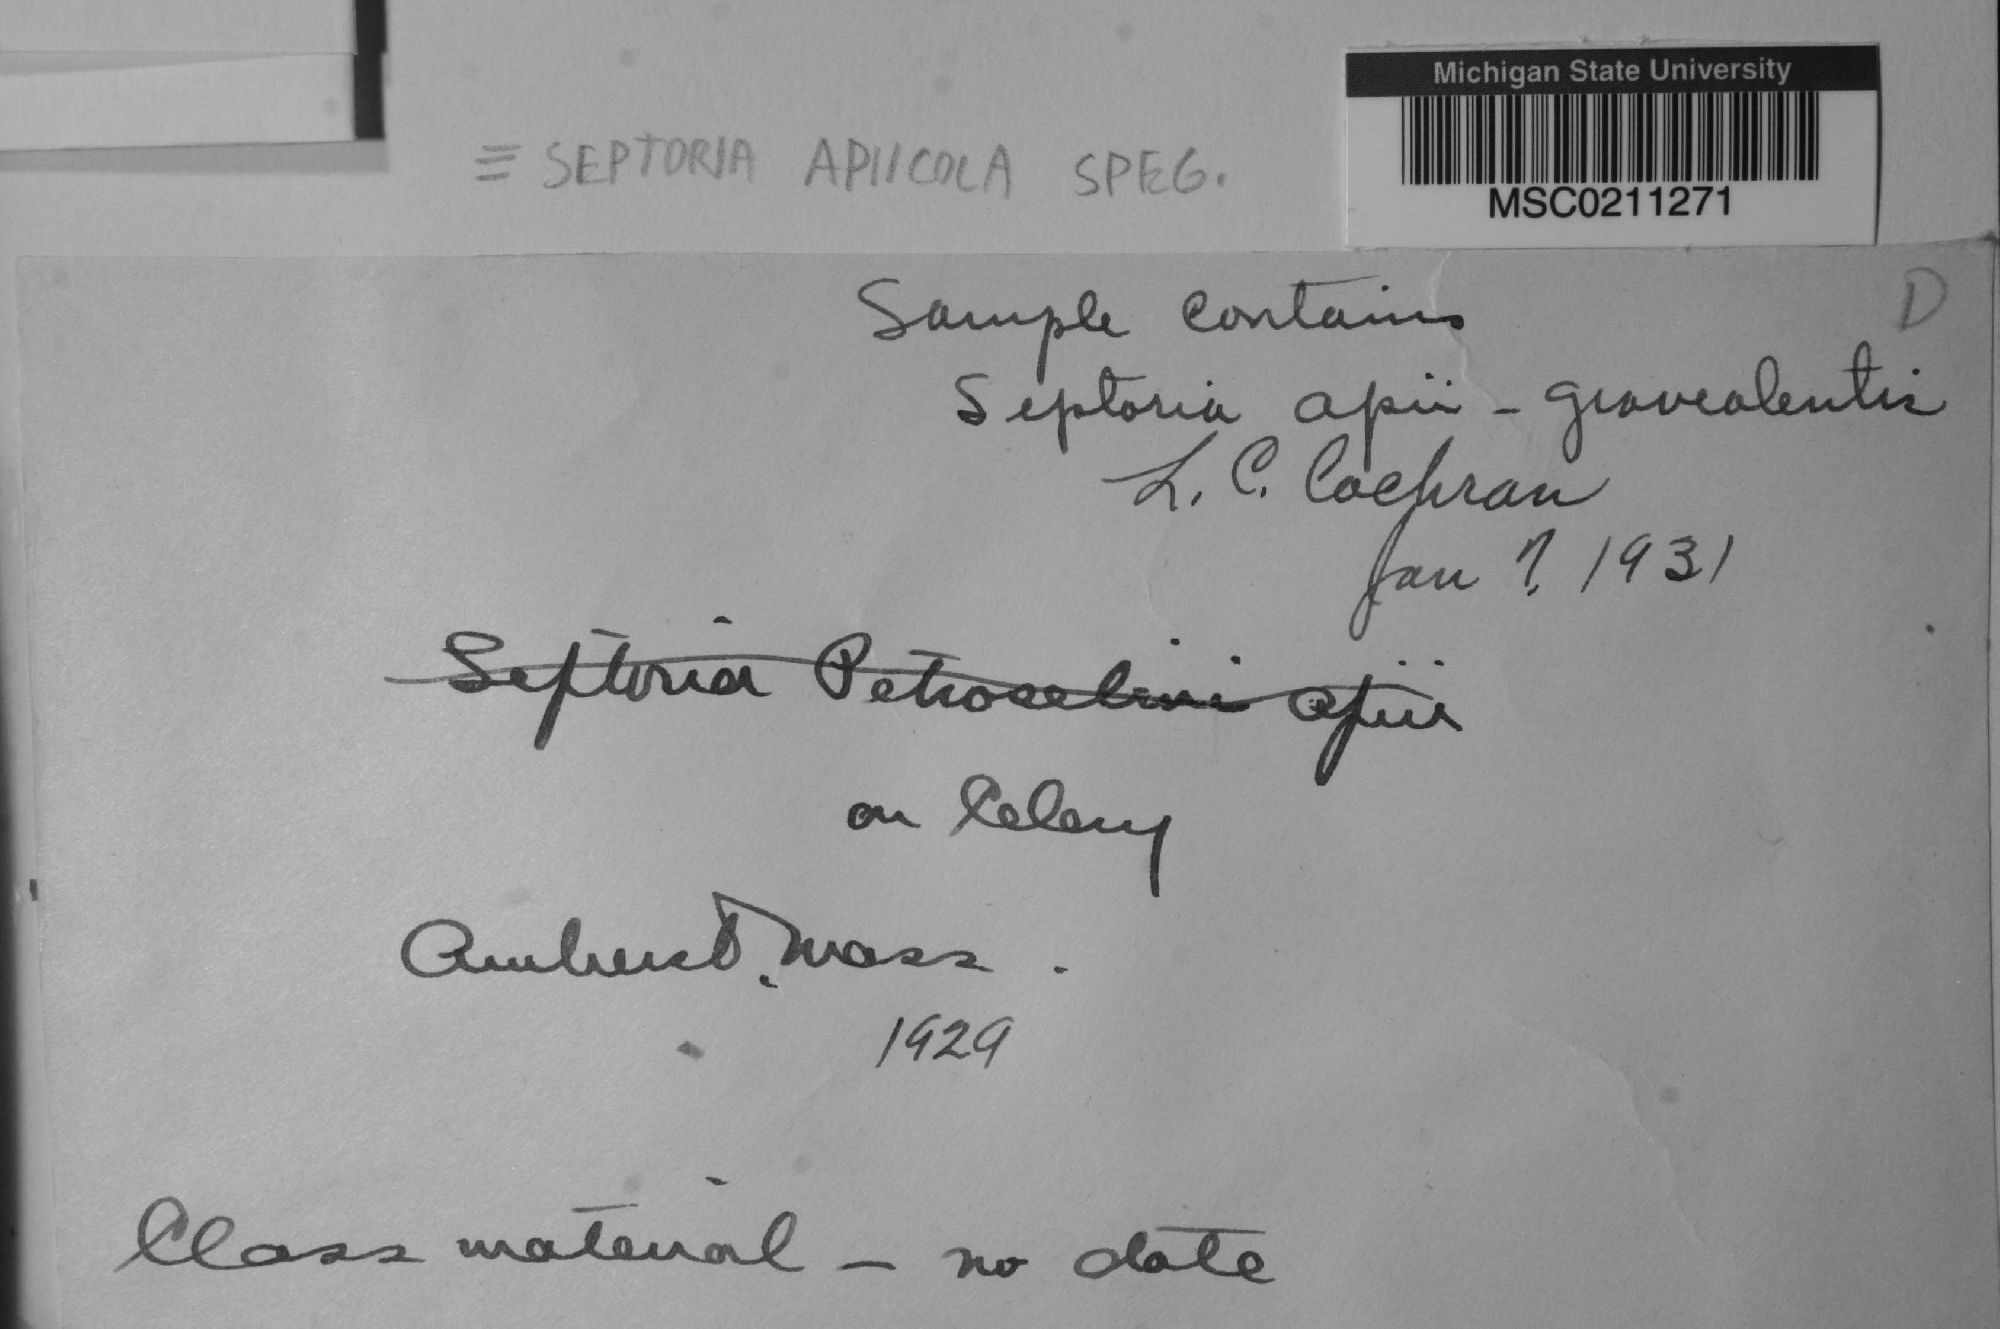 Michigan State University
MSC0211271
≡ SEPTORIA APIICOLA SPEG.
D
Sample contains
Septoria apii - graveolentis
L. C. Cochran
Jan 7, 1931
Septoria Petroselini apii
on Celery
Amherst, Mass.
1929
Class material - no date